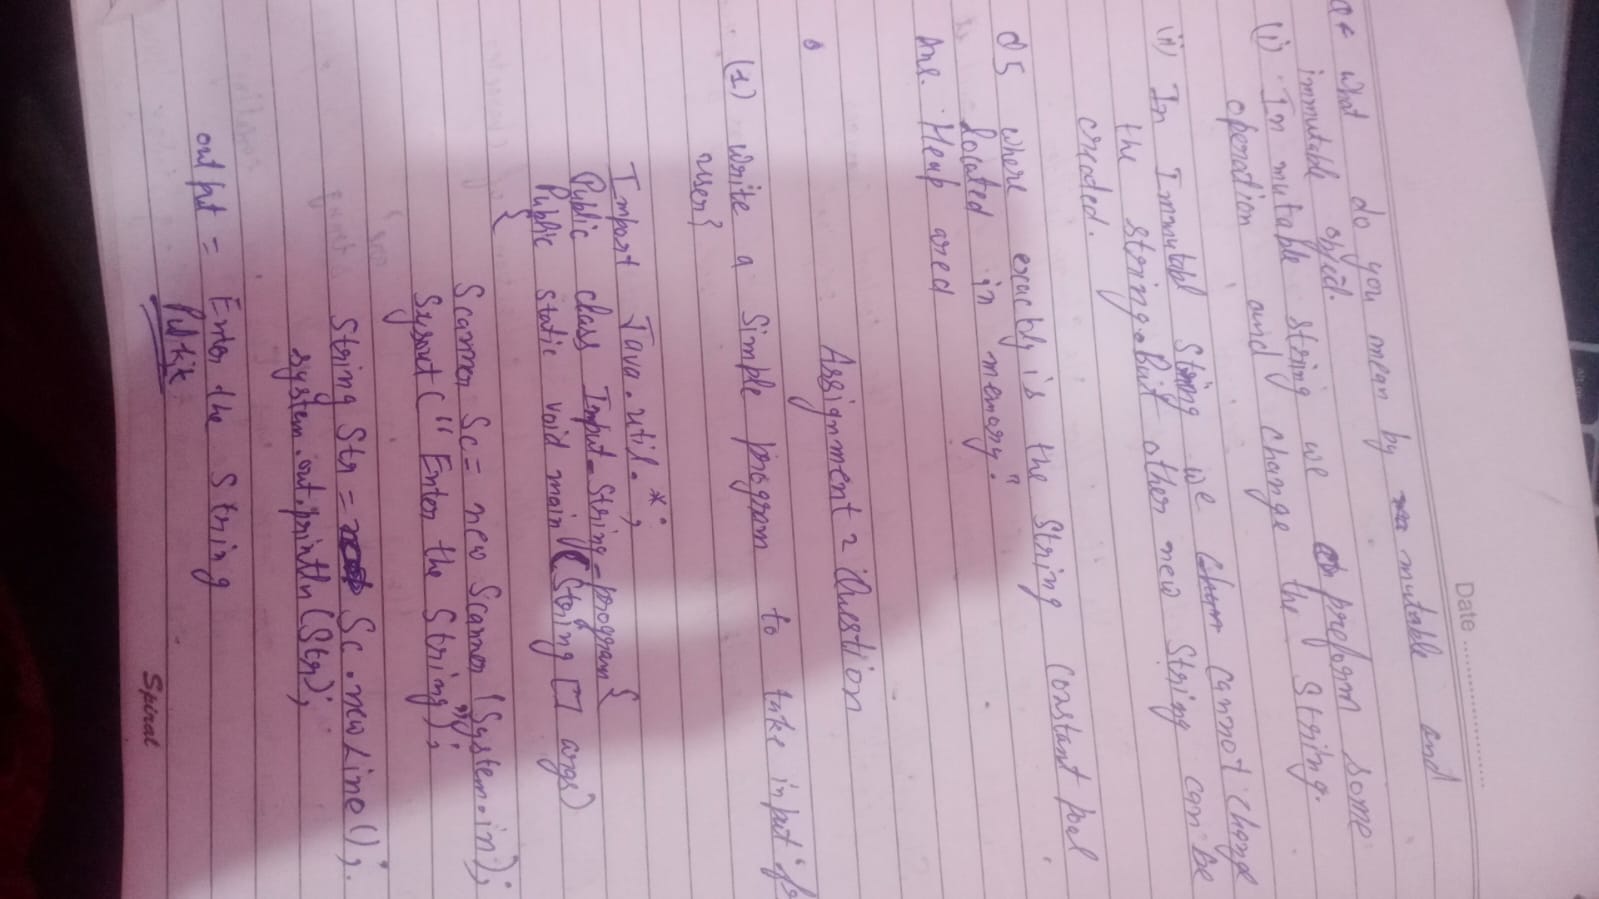 Date ....................
Q4 what do you mean by mutable and
immutable object.
(i) In mutable string we can preform some
operation and change the string.
(ii) In Immutabl String we cannot change
the string. But other new String can be
created.
Q5 where exactly is the string constant pool
located in memory?
Ans. Heap area
Assignment 2 Question
(1) write a Simple program to take input
user?
Import Java.util.*;
Public class Input_String_program{
Public static void main (String [] args)
{
Scanner Sc = new Scanner (System.in);
Sysout ("Enter the String");
String Str = Sc.newLine();
System.out.println(Str);
output = Enter the String
Pulkit
Spiral